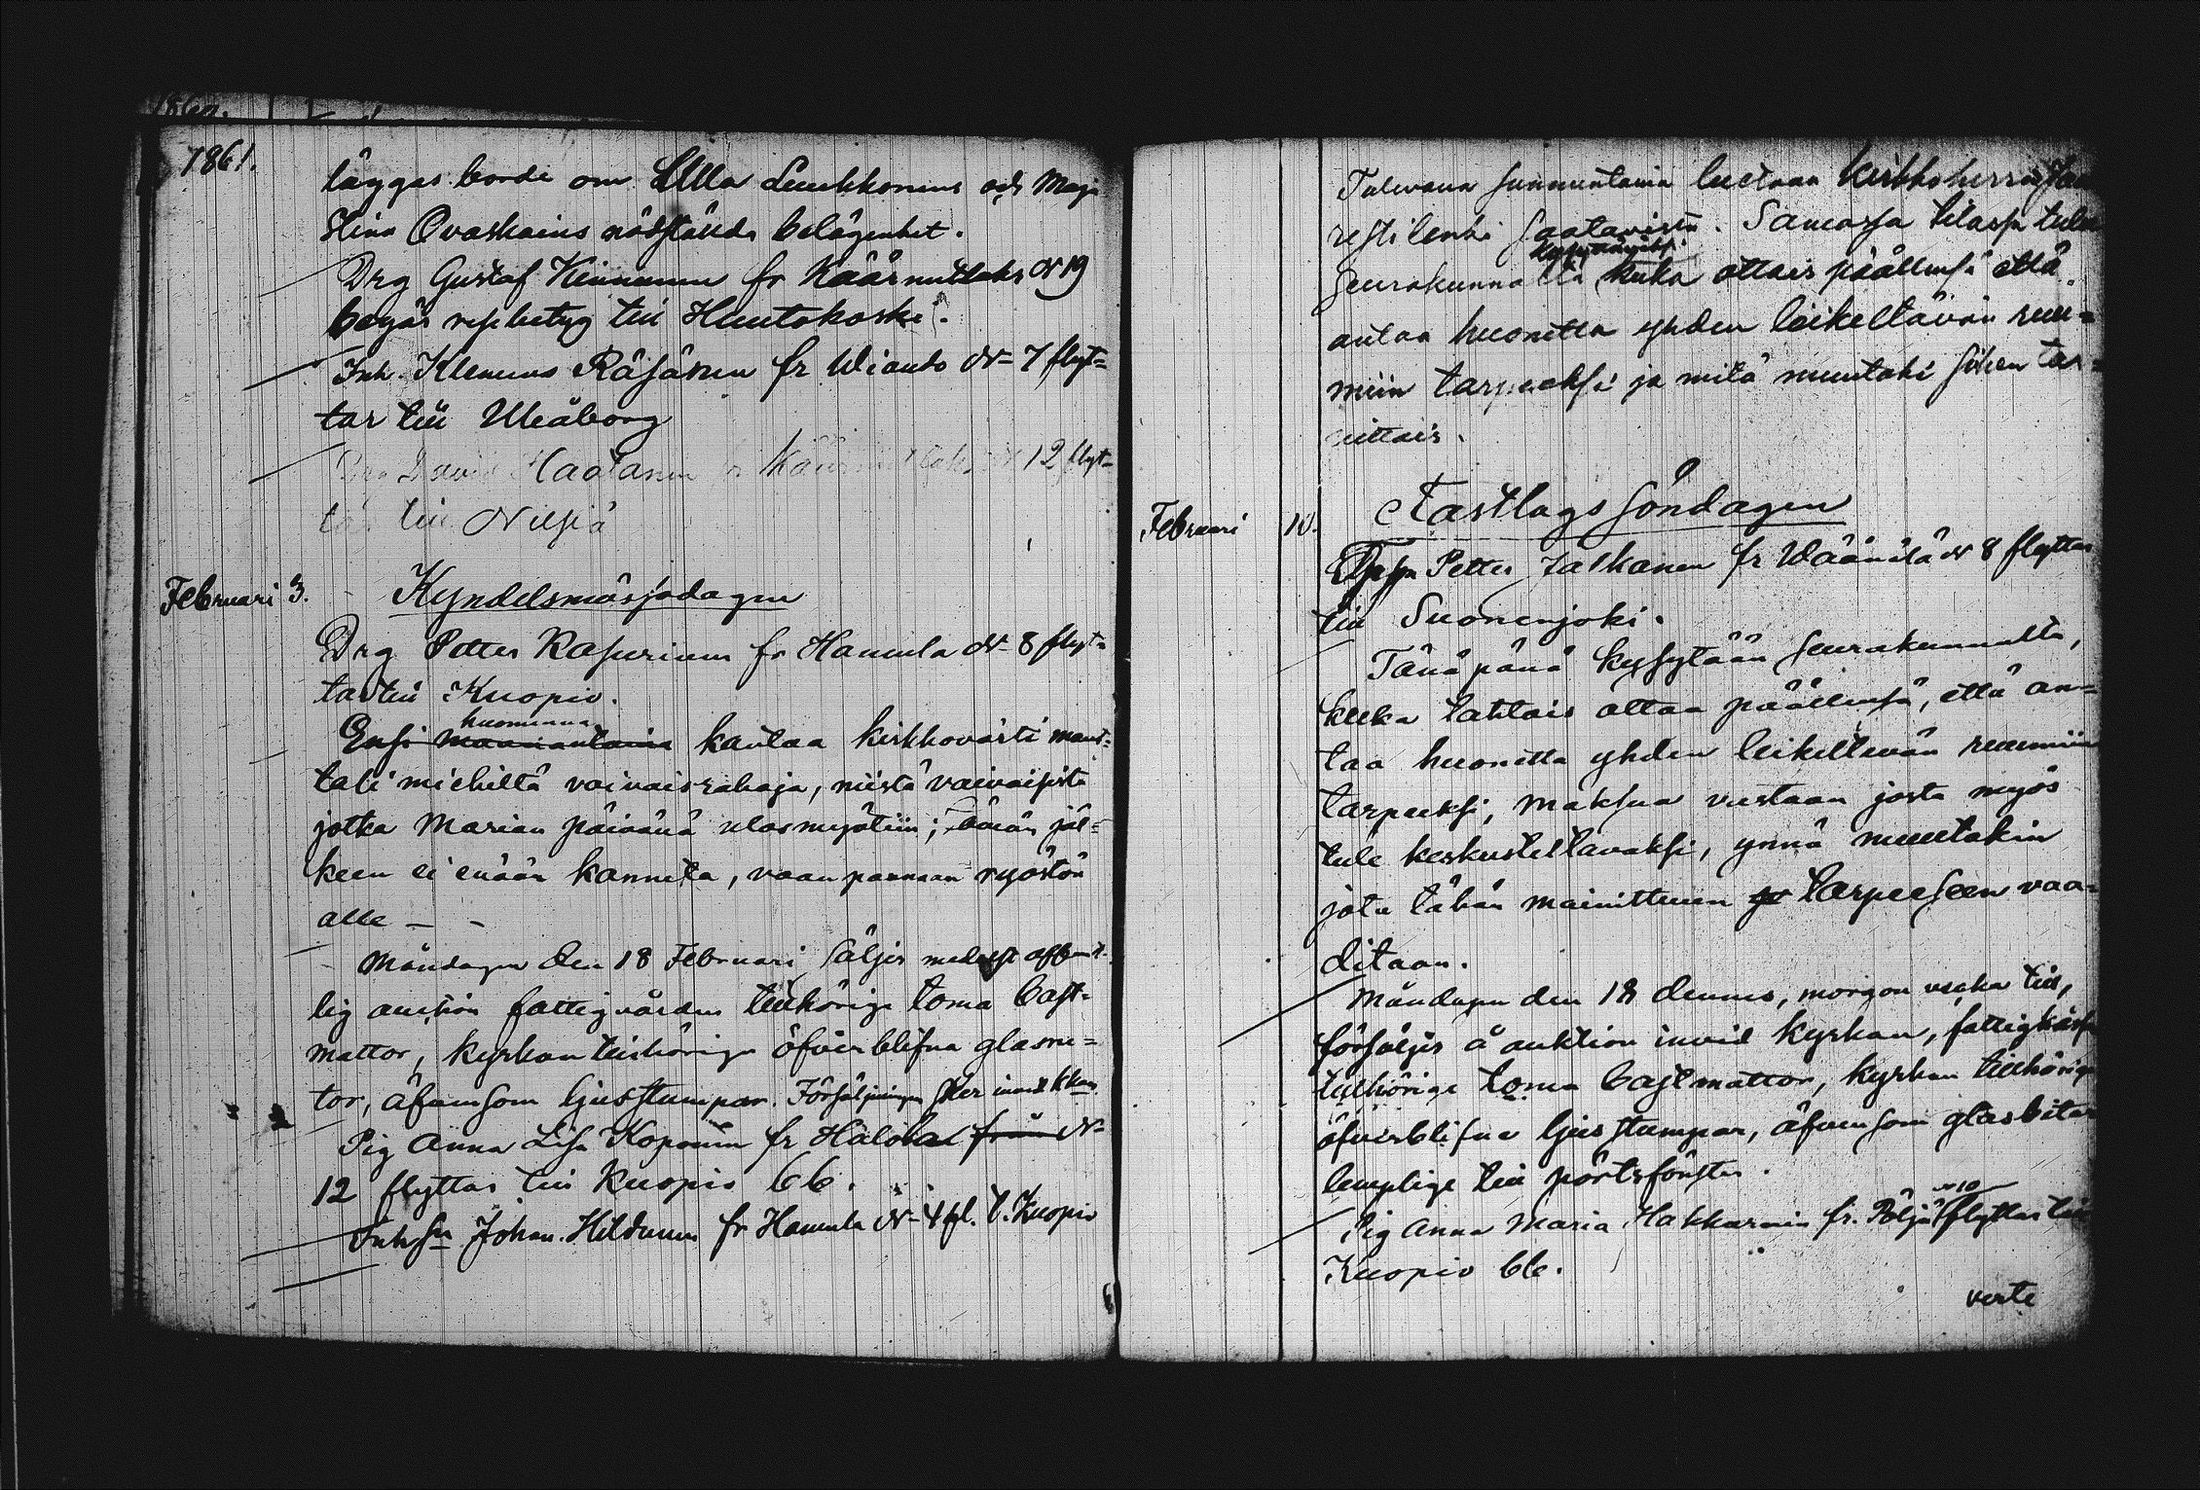 1861.
läggas borde om Ulla Leukkonens och Maja
Stina Ovaskains nödstånds belägenhet.
Drg Gustaf Kinnunen fr Käärmelaks N 19
begär respbetyg till Huutokoski.
Inh. Klemens Räsänen fr Wianto N 7 flyt=
tar till Uleåborg
Drg David Haatanen fr 12 flyt=
tar till Nilsiä
Februari 3. Kyndelsmässodagen
Drg Petter Rasurinen fr Hamula N 8 flyt=
tar till Kuopio.
huomenna
Ensi maanantaina kantaa kirkkovärti mant=
tali miehiltä vaivaisrahaja, niistä vaivaisista
jotka Marian päivänä ulosmyötiin; tämän jäl=
keen ei enään kanneta, vaan pannaan ryöstön
alle — -
Måndagen den 18 Februari säljes medelst offent=
lig auktion fattigvården tillhöriga toma bast=
mattor, kyrkan tillhöriga öfverblifna glasru=
tor, äfvensom ljusstumpar. Försäljningen sker invid kkan
Pig Anna Lisa Koponen fr Halola från N
12 flyttar till Kuopio 66.
Inhsn Johan Hildunen fr Hamula N 4 fl. t. Kuopio
Tulevana sunnuntaina luetaan Kirkkoherran
restilenki saatavista. Samassa tilassa tulee
kysyttäväksi
seurakunnalta kuka ottais päällensä että
antaa huonetta yhden leikeltävän ruu=
miin tarpeeksi ja mitä muutaki siihen tar=
vittais.
Februari 10. Fastlags Söndagen
Petter Jalkanen fr Wäänälä N 8 flyttar
till Suonenjoki.
Tänäpänä kysytään seurakunnalta,
kuka tahtais ottaa päällensä, että an=
taa huonetta yhden leikeltävän ruumiin
tarpeeksi, maksua vastaan josta myös
tule keskusteltavaksi, ynnä muutakin
jota tähän mainittuun ja tarpeeseen vaa=
ditaan.
Måndagen den 18 dennes, morgon vecka till,
försäljes å auktion invid kyrkan, fattigkassan
tillhöriga toma bastmattor, kyrkan tillhöriga
öfverblifna ljusstumpar, äfvensom glasbitar
lemplige till pörtsfönster.
N 10
Pig Anna Maria Hakkarain fr. Pöljä flyttar till
Kuopio 66.
verte